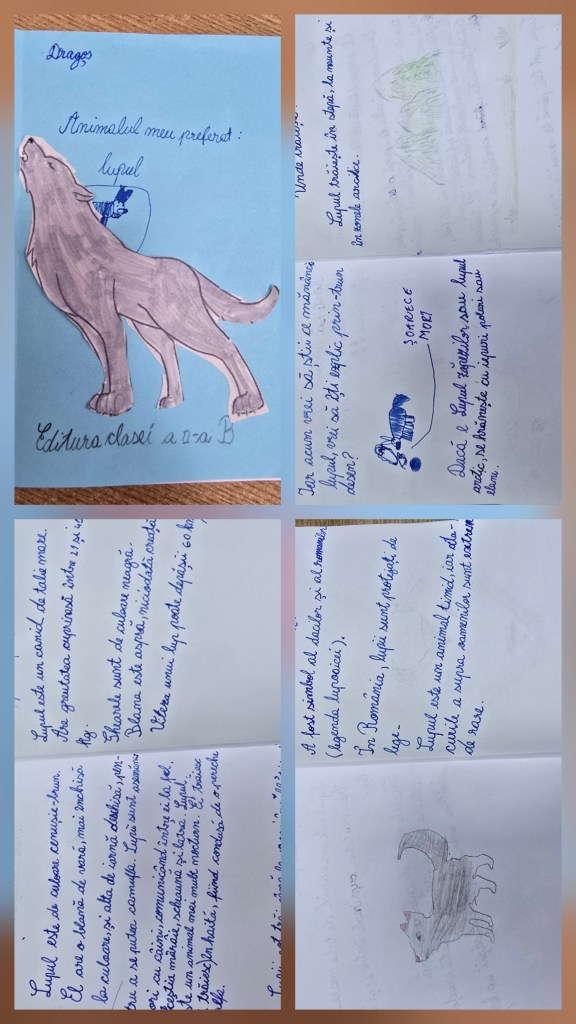 Dragoș
Animalul meu preferat:
lupul
Editura clasei a II-a B
Unde trăiesc?
Lupul trăiește în stepă, la munte și
în zonele arctice.
Iar acum vrei să știi ce mănâncă
lupul, vrei să îți explic prin-trun
desen?
ȘOARECE
MORT
Dacă e Lupul zăpezilor sau lupul
arctic, se hrănește cu iepuri polari sau
elani.
Lupul este un canid de talie mare.
Are greutatea cuprinsă între 21 și
kg.
Ghearele sunt de culoare neagră.
Blana este aspră, niciodată creață
Viteza unui lup poate depăși 60 km
Lupul este de culoare cenușie-brun.
El are o blană de vară, mai închisă
la culoare, și alta de iarnă deschisă, pen-
tru a se putea camufla. Lupii sunt asemănă
ori cu câini, comunicând între ei la fel.
ceștia mârâie, scheaună și latră. Lupul
te un animal mai mult nocturn. El trăiesc
trăiesc) în haită, fiind condusă de o pereche
alfa.
A fost simbol al dacilor și al romanilor
(legenda lupoaicei).
În România, lupii sunt protejați de
lege.
Lupul este un animal timid, iar ata-
curile a supra oamenilor sunt extrem
de rare.